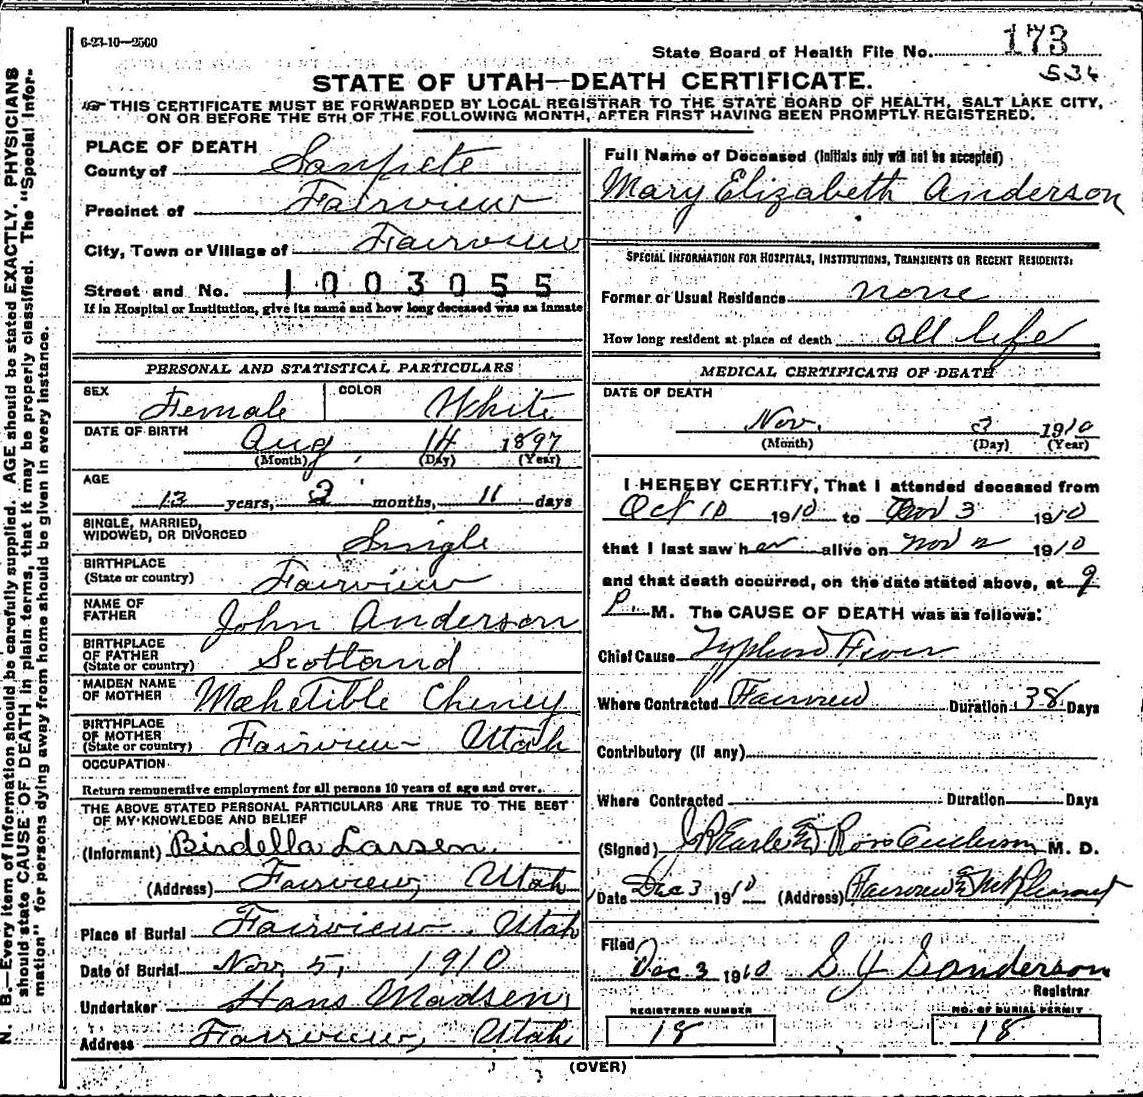 6-23-10—2500
State Board of Health File No. 173
536
STATE OF UTAH—DEATH CERTIFICATE.
THIS CERTIFICATE MUST BE FORWARDED BY LOCAL REGISTRAR TO THE STATE BOARD OF HEALTH, SALT LAKE CITY,
ON OR BEFORE THE 5TH OF THE FOLLOWING MONTH, AFTER FIRST HAVING BEEN PROMPTLY REGISTERED.
PLACE OF DEATH
County of Sanpete
Precinct of Fairview
City, Town or Village of Fairview
Street and No. 1003055
If in Hospital or Institution, give its name and how long deceased was an inmate
PERSONAL AND STATISTICAL PARTICULARS
SEX Female COLOR White
DATE OF BIRTH Aug 14 1897
(Month) (Day) (Year)
AGE
13 years, 2 months, 11 days
SINGLE, MARRIED,
WIDOWED, OR DIVORCED Single
BIRTHPLACE
(State or country) Fairview
NAME OF
FATHER John Anderson
BIRTHPLACE
OF FATHER
(State or country) Scotland
MAIDEN NAME
OF MOTHER Mahetible Cheney
BIRTHPLACE
OF MOTHER
(State or country) Fairview Utah
OCCUPATION
Return remunerative employment for all persons 10 years of age and over.
THE ABOVE STATED PERSONAL PARTICULARS ARE TRUE TO THE BEST
OF MY KNOWLEDGE AND BELIEF
(Informant) Birdella Larsen
(Address) Fairview, Utah
Place of Burial Fairview Utah
Date of Burial Nov, 5, 1910
Undertaker Hans Madsen,
Address Fairview, Utah
Full Name of Deceased (Initials only will not be accepted)
Mary Elizabeth Anderson
SPECIAL INFORMATION FOR HOSPITALS, INSTITUTIONS, TRANSIENTS OR RECENT RESIDENTS:
Former or Usual Residence none
How long resident at place of death all life
MEDICAL CERTIFICATE OF DEATH
DATE OF DEATH
Nov. 3 1910
(Month) (Day) (Year)
I HEREBY CERTIFY, That I attended deceased from
Oct 10 1910 to Nov 3 1910
that I last saw her alive on Nov 2 1910
and that death occurred, on the date stated above, at 9
P. M. The CAUSE OF DEATH was as follows:
Chief Cause Typhoid Fever
Where Contracted Fairview Duration 38 Days
Contributory (if any)
Where Contracted Duration Days
(Signed) Ross Anderson M. D.
Date Dec 3 1910 (Address) Fairview & Mt Pleasant
Filed
Dec. 3 1910 S Y Sanderson
Registrar
REGISTERED NUMBER
18
NO. OF BURIAL PERMIT
18
(OVER)
N. B.—Every item of information should be carefully supplied. AGE should be stated EXACTLY. PHYSICIANS
should state CAUSE OF DEATH in plain terms, that it may be properly classified. The "Special Infor-
mation" for persons dying away from home should be given in every instance.